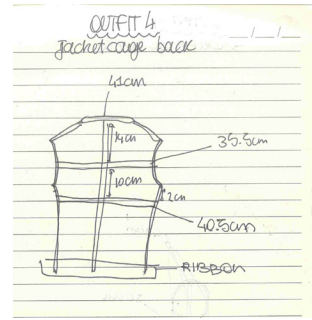 OUTFIT 4
__/__/__
Jacket cage back
41cm
14cm
35.5cm
10cm
2cm
40.5cm
RIBBON